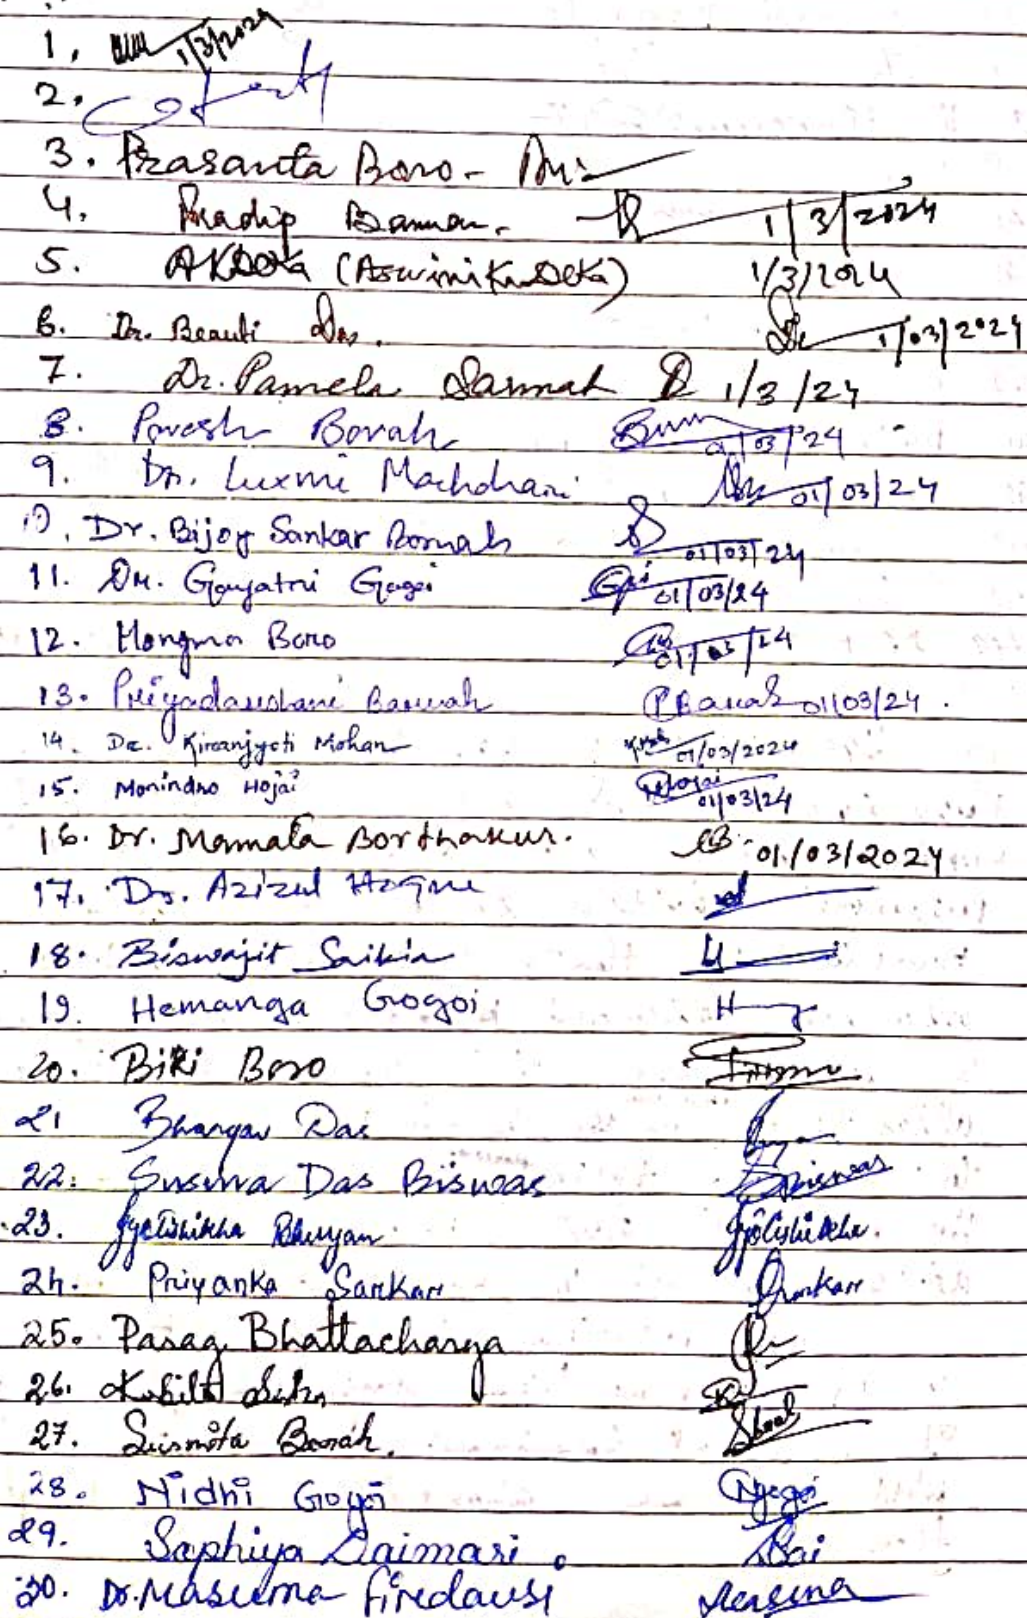 1. 1/3/2024
2.
3. Prasanta Boro -
4. Pradip Barman. 1/3/2024
5. AKDeka (Aswini Kr. Deka) 1/3/2024
6. Dr. Beauti Das. 1/03/2024
7. Dr. Pamela Sarmah 1/3/24
8. Poresh Borah 01/03/24
9. Dr. Luxmi Machahari 01/03/24
10. Dr. Bijoy Sankar Bornah 01/03/24
11. Dr. Gayatri Gogoi 01/03/24
12. Mongma Boro 01/03/24
13. Priyadarshani Baruah PBaruah 01/03/24.
14. Dr. Kiranjyoti Mohan 01/03/2024
15. Monindro Hojai MHojai 01/03/24
16. Dr. Mamata Borthakur. 01/03/2024
17. Dr. Azizul Hoque
18. Biswajit Saikia
19. Hemanga Gogoi
20. Biki Boro
21 Bhargav Das
22. Susma Das Biswas SBiswas
23. Jyotishikha Bhuyan Jyotishikha.
24. Priyanka Sarkar
25. Parag Bhattacharya
26.
27. Susmita Borah.
28. Nidhi Gogoi Ngogoi
29. Saphiya Daimari.
30. Dr. Masuma firdausi Masuma